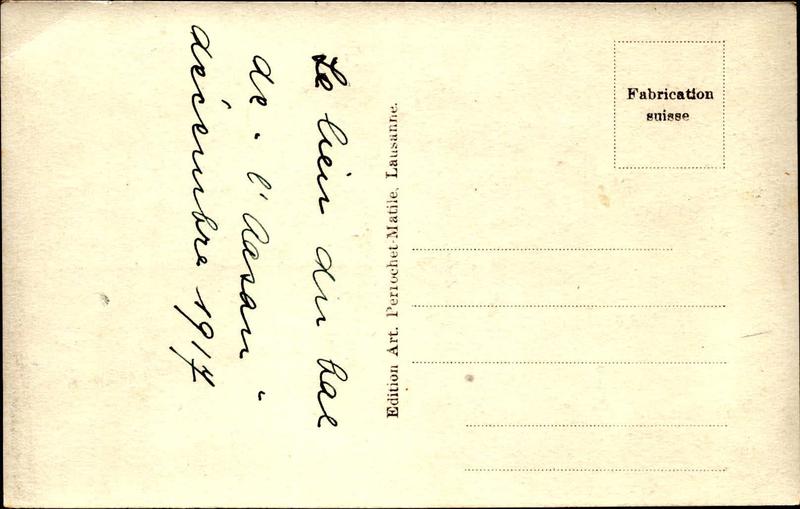 Le lieu du bal
de "l'Aasan"
décembre 1917
Edition Art. Perrochet-Matile, Lausanne.
Fabrication
suisse